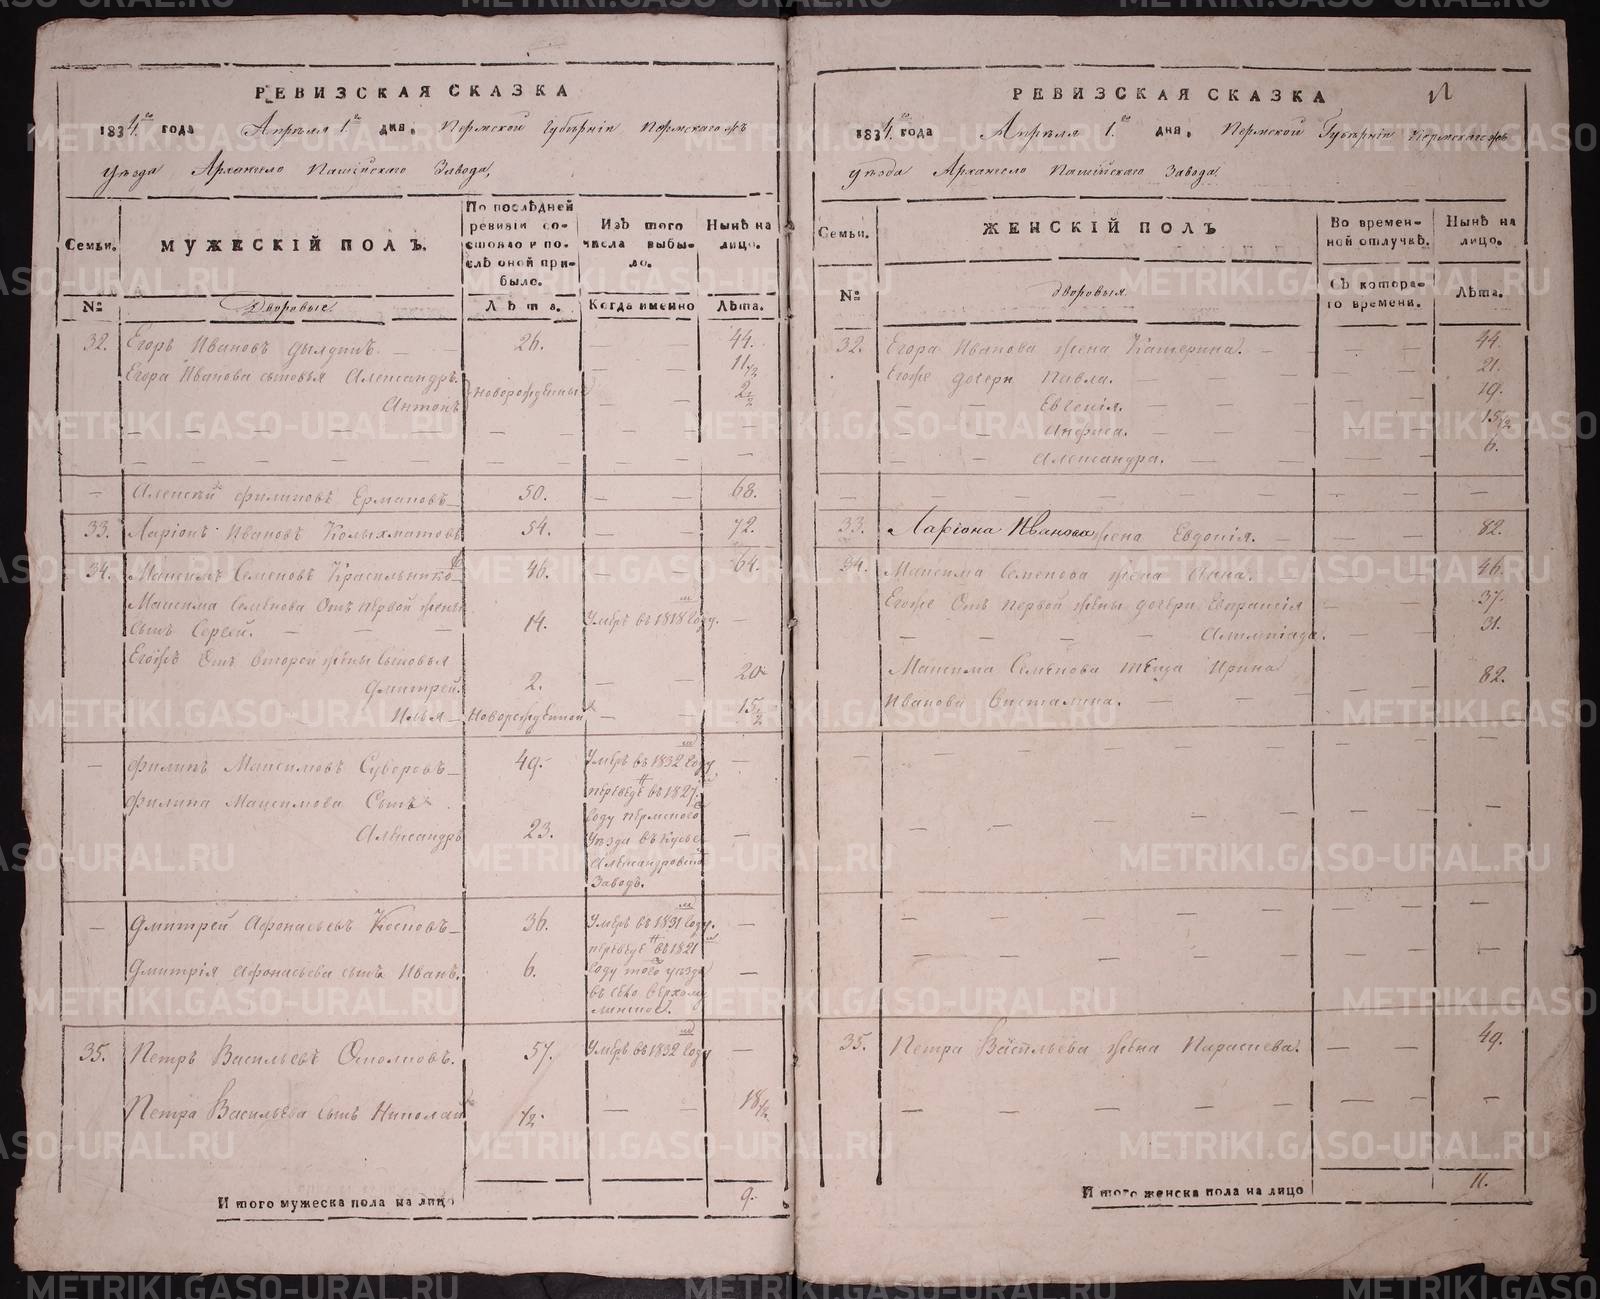 РЕВИЗСКАЯ СКАЗКА
1834го года Апреля 1го дня. Пермской Губѣрнiи Пермскагожъ
уѣзда Архангело Пашiйскаго Завода,
Семьи.
МУЖЕСКIЙ ПОЛЪ.
По послѣдней
ревизiи со-
стояло и по-
слѣ оной при-
было.
Изъ того
числа выбы-
ло.
Нынѣ на
лицо.
№
Дворовые
Лѣта.
Когда именно
Лѣта.
32. Егоръ Ивановъ 26. — — 44.
Егора Иванова сыновья Александръ. новорожденныя — — 11 1/2
Антонъ — — 2 1/2
— Алексѣй Филиповъ Ермаковъ 50. — — 68.
33. Ларiонъ Ивановъ Колыхматовъ 54. — — 72.
34. Максимъ Семеновъ Красильниковъ 46. — 64.
Максима Семѣнова Отъ первой жены
сынъ Сергей. — — — 14. Умеръ въ 1818м году. —
Егожъ Отъ второй жены Сыновья
Дмитрей. 2. — — 20
Илья Новорожденной — — 15 1/2
— Филипъ Максимовъ Суворовъ 49. Умеръ въ 1832м году —
Филипа Максимова Сынъ
Александръ 23. переведе въ 1827.
году пермского
уезда въ Кусье
Александровскiй
Заводъ. —
— Дмитрей Афонасьевъ Косновъ 36. Умеръ въ 1831м году. —
Дмитрiя Афонасьева сынъ Иванъ. 6. переведе въ 1821
году того уезда
въ село верхому
линское. —
35. Петръ Васильевъ Остолповъ. 57. Умеръ въ 1832м году —
Петра Васильева сынъ Николай 1/2. — — 18 1/2
Итого мужеска пола на лицо 9.
РЕВИЗСКАЯ СКАЗКА
1834го года Апрѣля 1го дня. Пермской Губѣрнiи Пермскагожъ
уѣзда Архангело Пашiйскаго Завода
Семьи.
ЖЕНСКIЙ ПОЛЪ
Во времен-
ной отлучкѣ.
Нынѣ на
лицо.
№
дворовыя
Съ котора-
го времени.
Лѣта.
32. Егора Иванова жена Катерина. — — — 44.
Егоже дочери Павла. — — — 21.
— — Евгенiя. — — 19.
— — Анфиса. — — 15 1/2
— — Александра. — — 6.
— — — — — — —
33. Ларiона Иванова жена Евдокiя. — — — 82.
34. Максима Семенова жена Анна. — — — 46.
Егоже Отъ первой жены дочери Евпраксiя — — 37.
— — — — Алимпiада. — — 31.
Максима Семѣнова теща Ирина
Иванова — — 82.
35. Петра Васильева жѣна Параскева. — — 49.
Итого женска пола на лицо 11.
METRIKI.GASO-URAL.RU